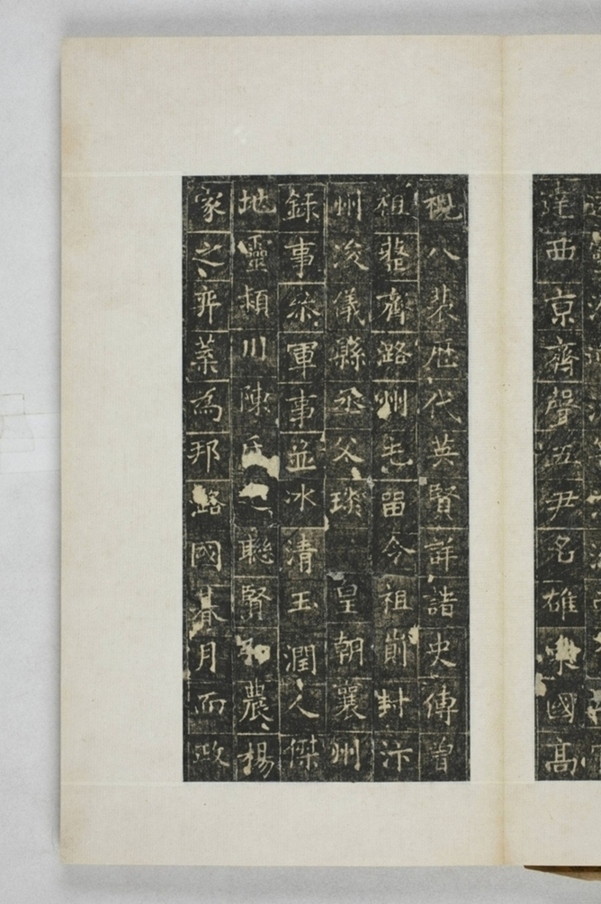 西京齊聲五尹名雄東國高
視八裴歷代英賢詳諸史傳曾
祖齊潞州屯畱令祖蒯封汴
州浚儀縣丞父琰皇朝襄州
録事叅軍事並冰清玉潤人傑
地靈頴川陳氏之聡賢農楊
家之弈葉為邦路國朞月而政